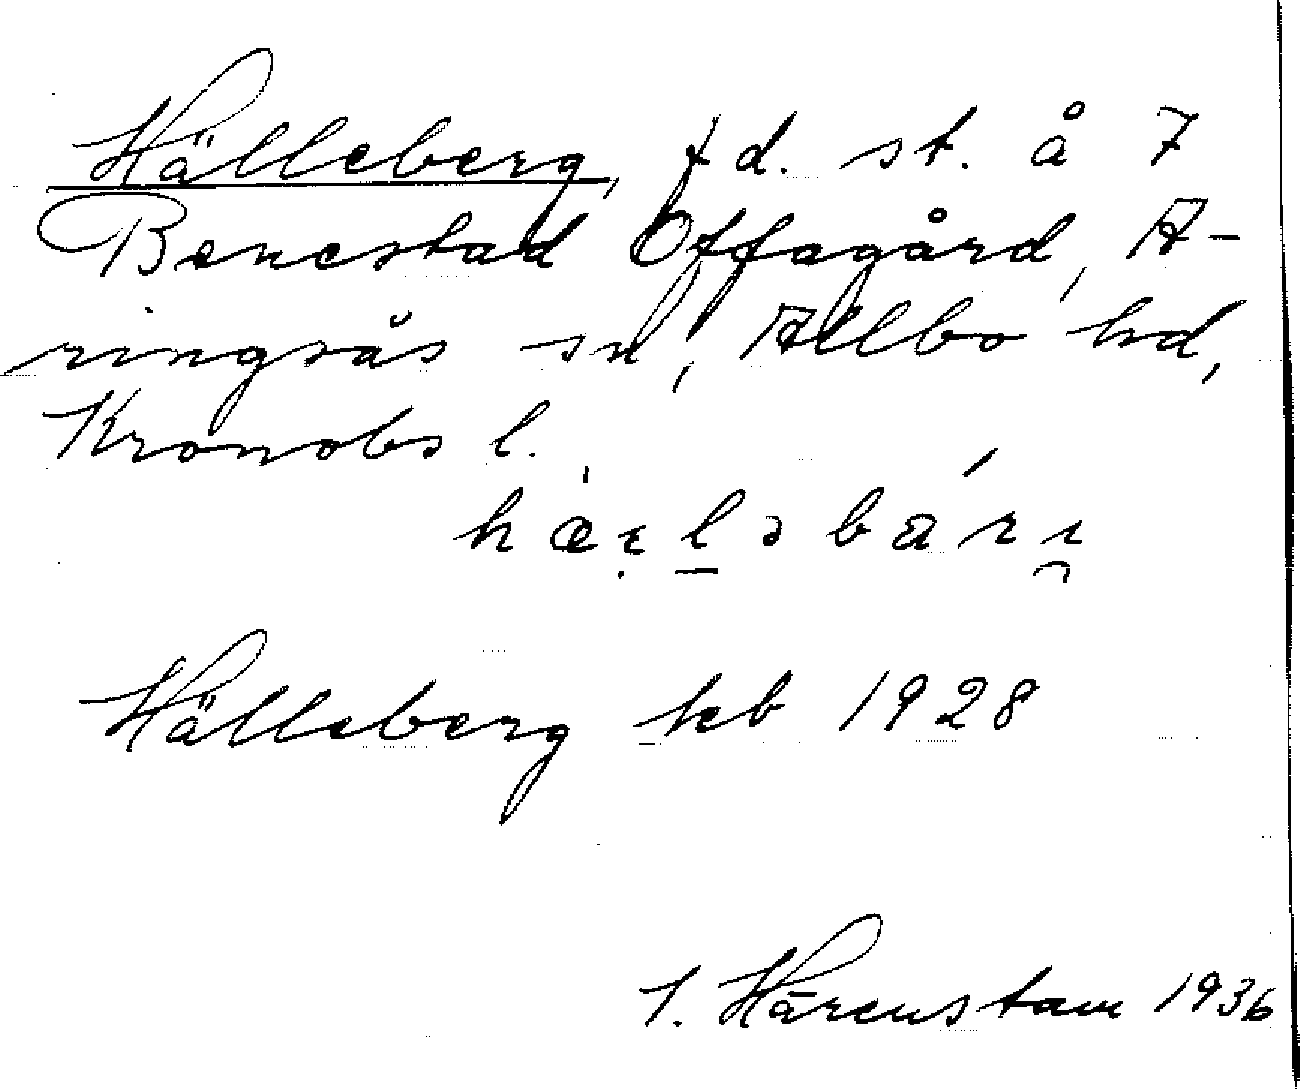 Hälleberg, f d. st. å 7
Benestad Offagård, A-
ringsås sn, Allbo hd,
Kronobs l.
Hälleberg kb 1928
I. Härenstam 1936